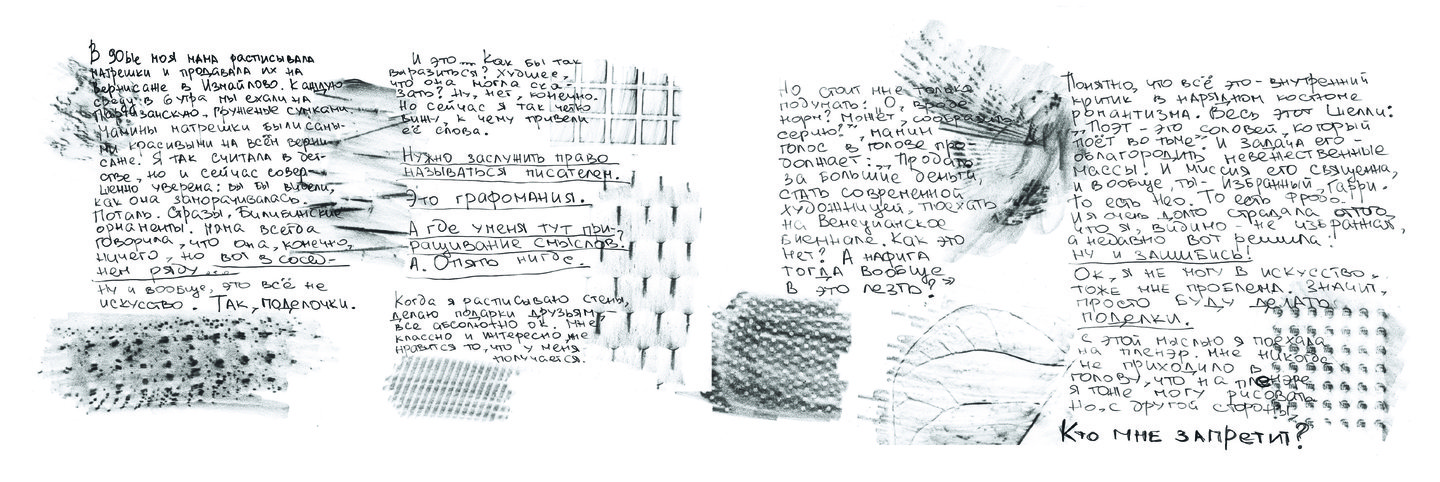 В 90ые моя мама расписывала
матрешки и продавала их на
вернисаже в Измайлово. Каждую
среду в 6 утра мы ехали на
Партизанскую, груженые сумками.
Мамины матрешки были самы-
ми красивыми на всём верни-
саже. Я так считала в дет-
стве, но и сейчас совер-
шенно уверена: вы бы видели,
как она заморачивалась.
Поталь. Стразы. Билибинские
орнаменты. Мама всегда
говорила, что она, конечно,
ничего, но вот в сосед-
нем ряду...
Ну и вообще, это всё не
искусство. Так, поделочки.
И это... Как бы так
выразиться? Худшее,
что она могла ска-
зать? Ну, нет, конечно.
Но сейчас я так четко
вижу, к чему привели
её слова.
Нужно заслужить право
называться писателем.
Это графомания.
А где у меня тут при-
ращивание смыслов?
А. Опять нигде.
Когда я расписываю стены,
делаю подарки друзьям,–
все абсолютно ок. Мне
классно и интересно, мне
нравится то, что у меня
получается.
Но стоит мне только
подумать: "О, вроде
норм? Может, сообразить
серию?", мамин
голос в голове про
должает: "Продать
за большие деньги,
стать современной
художницей, поехать
на Венецианское
биеннале. Как это
нет? А нафига
тогда вообще
в это лезть?"
Понятно, что всё это - внутренний
критик в нарядном костюме
романтизма. Весь этот Шелли:
"Поэт - это соловей, который
поёт во тьме". И задача его -
облагородить невежественные
массы. И миссия его священна,
и вообще, ты - избранный, Гарри.
То есть Нео. То есть Фродо.
И я очень долго страдала оттого,
что я, видимо - не избранная,
а недавно вот решила:
ну и зашибись!
Ок, я не могу в искусство.
Тоже мне проблема. Значит,
просто буду делать
поделки.
С этой мыслью я поехала
на пленэр. Мне никогда
не приходило в
голову, что на пленэре
я тоже могу рисовать
Но, с другой стороны,
Кто мне запретит?